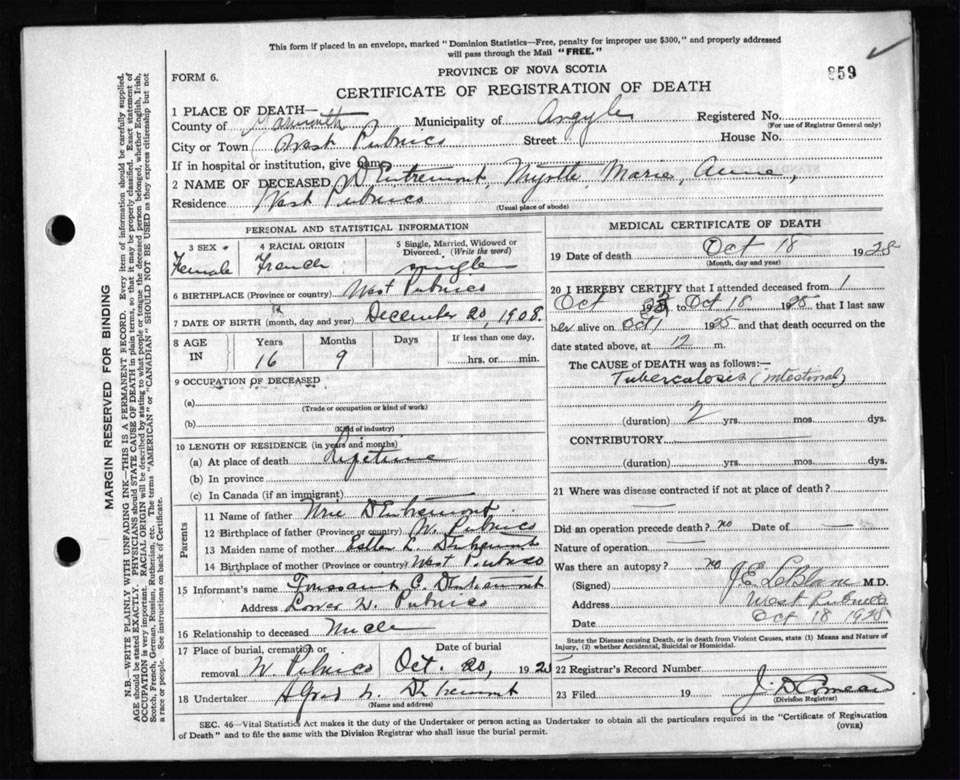 This form if placed in an envelope, marked "Dominion Statistics—Free, penalty for improper use $300," and properly addressed
will pass through the Mail "FREE."
FORM 6.
PROVINCE OF NOVA SCOTIA
859
CERTIFICATE OF REGISTRATION OF DEATH
1 PLACE OF DEATH—
County of Yarmouth Municipality of Argyle Registered No.
(For use of Registrar General only)
City or Town West Pubnico Street House No.
If in hospital or institution, give name
2 NAME OF DECEASED D'Entremont, Myrtle, Marie, Anne,
Residence West Pubnico
(Usual place of abode)
PERSONAL AND STATISTICAL INFORMATION
3 SEX 4 RACIAL ORIGIN 5 Single, Married, Widowed or Divorced. (Write the word)
Female French single
6 BIRTHPLACE (Province or country) West Pubnico
7 DATE OF BIRTH (month, day and year) December 20, 1908.
8 AGE IN Years Months Days If less than one day,
16 9 hrs. or min.
9 OCCUPATION OF DECEASED
(a)
(Trade or occupation or kind of work)
(b)
(Kind of industry)
10 LENGTH OF RESIDENCE (in years and months)
(a) At place of death Lifetime
(b) In province
(c) In Canada (if an immigrant)
Parents
11 Name of father D'Entremont
12 Birthplace of father (Province or country) W. Pubnico
13 Maiden name of mother L. D'Entremont
14 Birthplace of mother (Province or country) West Pubnico
15 Informant's name Toussaint C. D'Entremont
Address Lower W. Pubnico
16 Relationship to deceased Uncle
17 Place of burial, cremation or removal Date of burial
W. Pubnico Oct. 20, 192
18 Undertaker D'Entremont
(Name and address)
MEDICAL CERTIFICATE OF DEATH
19 Date of death Oct 18 1925
(Month, day and year)
20 I HEREBY CERTIFY that I attended deceased from 1
Oct 192 to Oct 18 1925 that I last saw
her alive on Oct 1 1925 and that death occurred on the
date stated above, at 12 m.
The CAUSE of DEATH was as follows:—
Tuberculosis (intestional)
(duration) 2 yrs. mos. dys.
CONTRIBUTORY
(duration) yrs. mos. dys.
21 Where was disease contracted if not at place of death?
Did an operation precede death? no Date of
Nature of operation
Was there an autopsy? no
(Signed) J E LeBlanc M.D.
Address West Pubnico
Date Oct 18 1925
State the Disease causing Death, or in death from Violent Causes, state (1) Means and Nature of
Injury, (2) whether Accidental, Suicidal or Homicidal.
22 Registrar's Record Number
23 Filed 19 J. D. Comeau
(Division Registrar)
SEC. 46—Vital Statistics Act makes it the duty of the Undertaker or person acting as Undertaker to obtain all the particulars required in the "Certificate of Registration
of Death" and to file the same with the Division Registrar who shall issue the burial permit.
(OVER)
MARGIN RESERVED FOR BINDING
N.B.—WRITE PLAINLY WITH UNFADING INK—THIS IS A PERMANENT RECORD. Every item of information should be carefully supplied.
AGE should be stated EXACTLY. PHYSICIANS should STATE CAUSE OF DEATH in plain terms, so that it may be properly classified. Exact statement of
OCCUPATION is very important. RACIAL ORIGIN will be described by stating to what people or tongue the deceased person belonged, whether English, Irish,
Scotch, French, German, Russian, Ruthenian, etc. The terms "AMERICAN" or "CANADIAN" SHOULD NOT BE USED as they express citizenship but not
a race or people. See instructions on back of Certificate.